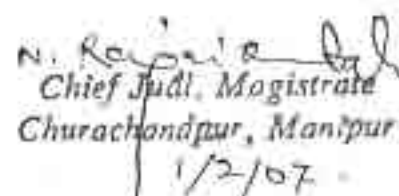 N.
Chief Judl. Magistrate
Churachandpur, Manipur
1/2/07.